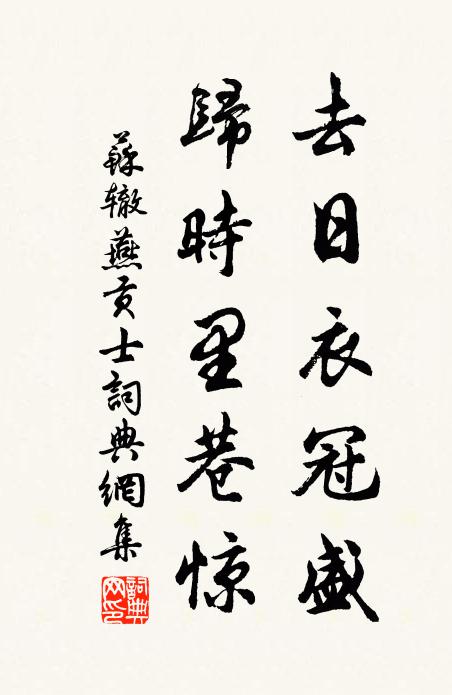 去日衣冠盛
歸時里巷惊
蘇辙燕贡士詞典網集
詞典网印